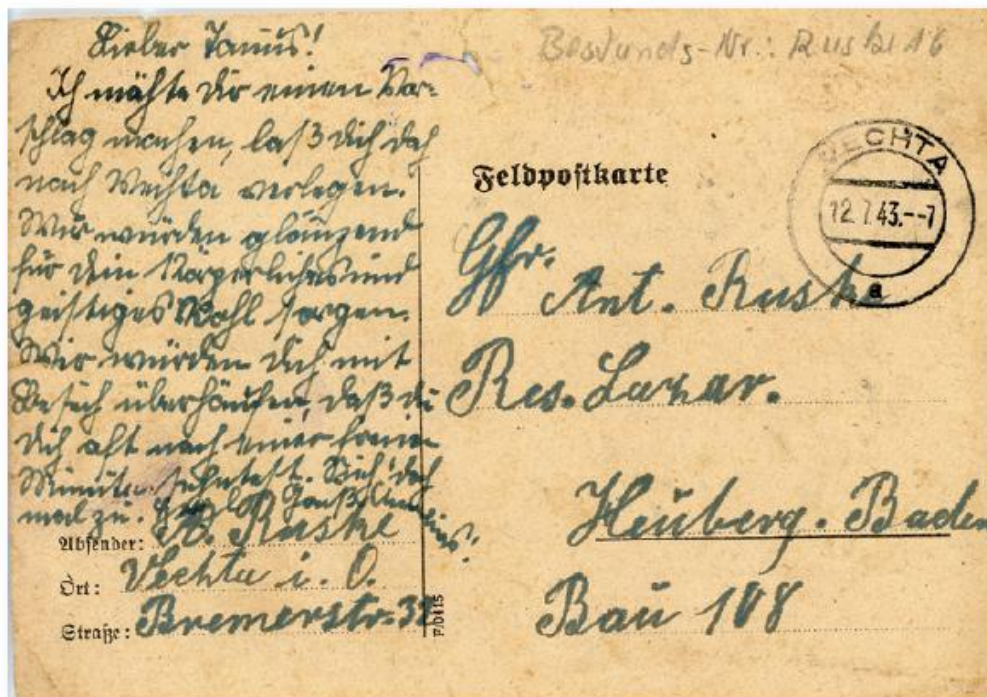 Bestands-Nr.: Ruske 16
Lieber Tonius!
Ich möchte dir einen Vor-
schlag machen, laß dich doch
nach Vechta verlegen.
Wir würden glänzend
für dein Körperliches und
geistiges Wohl sorgen.
Wir würden dich mit
Besuch überhäufen, daß du
dich oft nach einer freien
Minute sehntest. Sieh' doch
mal zu. Herzl. Gruß,
Absender: B. Ruske
Ort: Vechta i. O.
Straße: Bremerstr. 32
F/0115
Feldpostkarte
VECHTA
12.7.43.--7
a
Gfr.
Ant. Ruske
Res. Lazar.
Heuberg. Baden
Bau 108